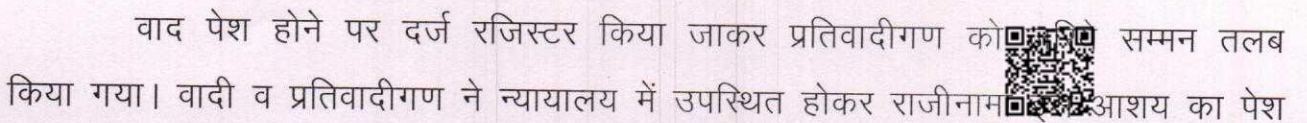 वाद पेश होने पर दर्ज रजिस्टर किया जाकर प्रतिवादीगण को सम्मन तलब
किया गया। वादी व प्रतिवादीगण ने न्यायालय में उपस्थित होकर आशय का पेश